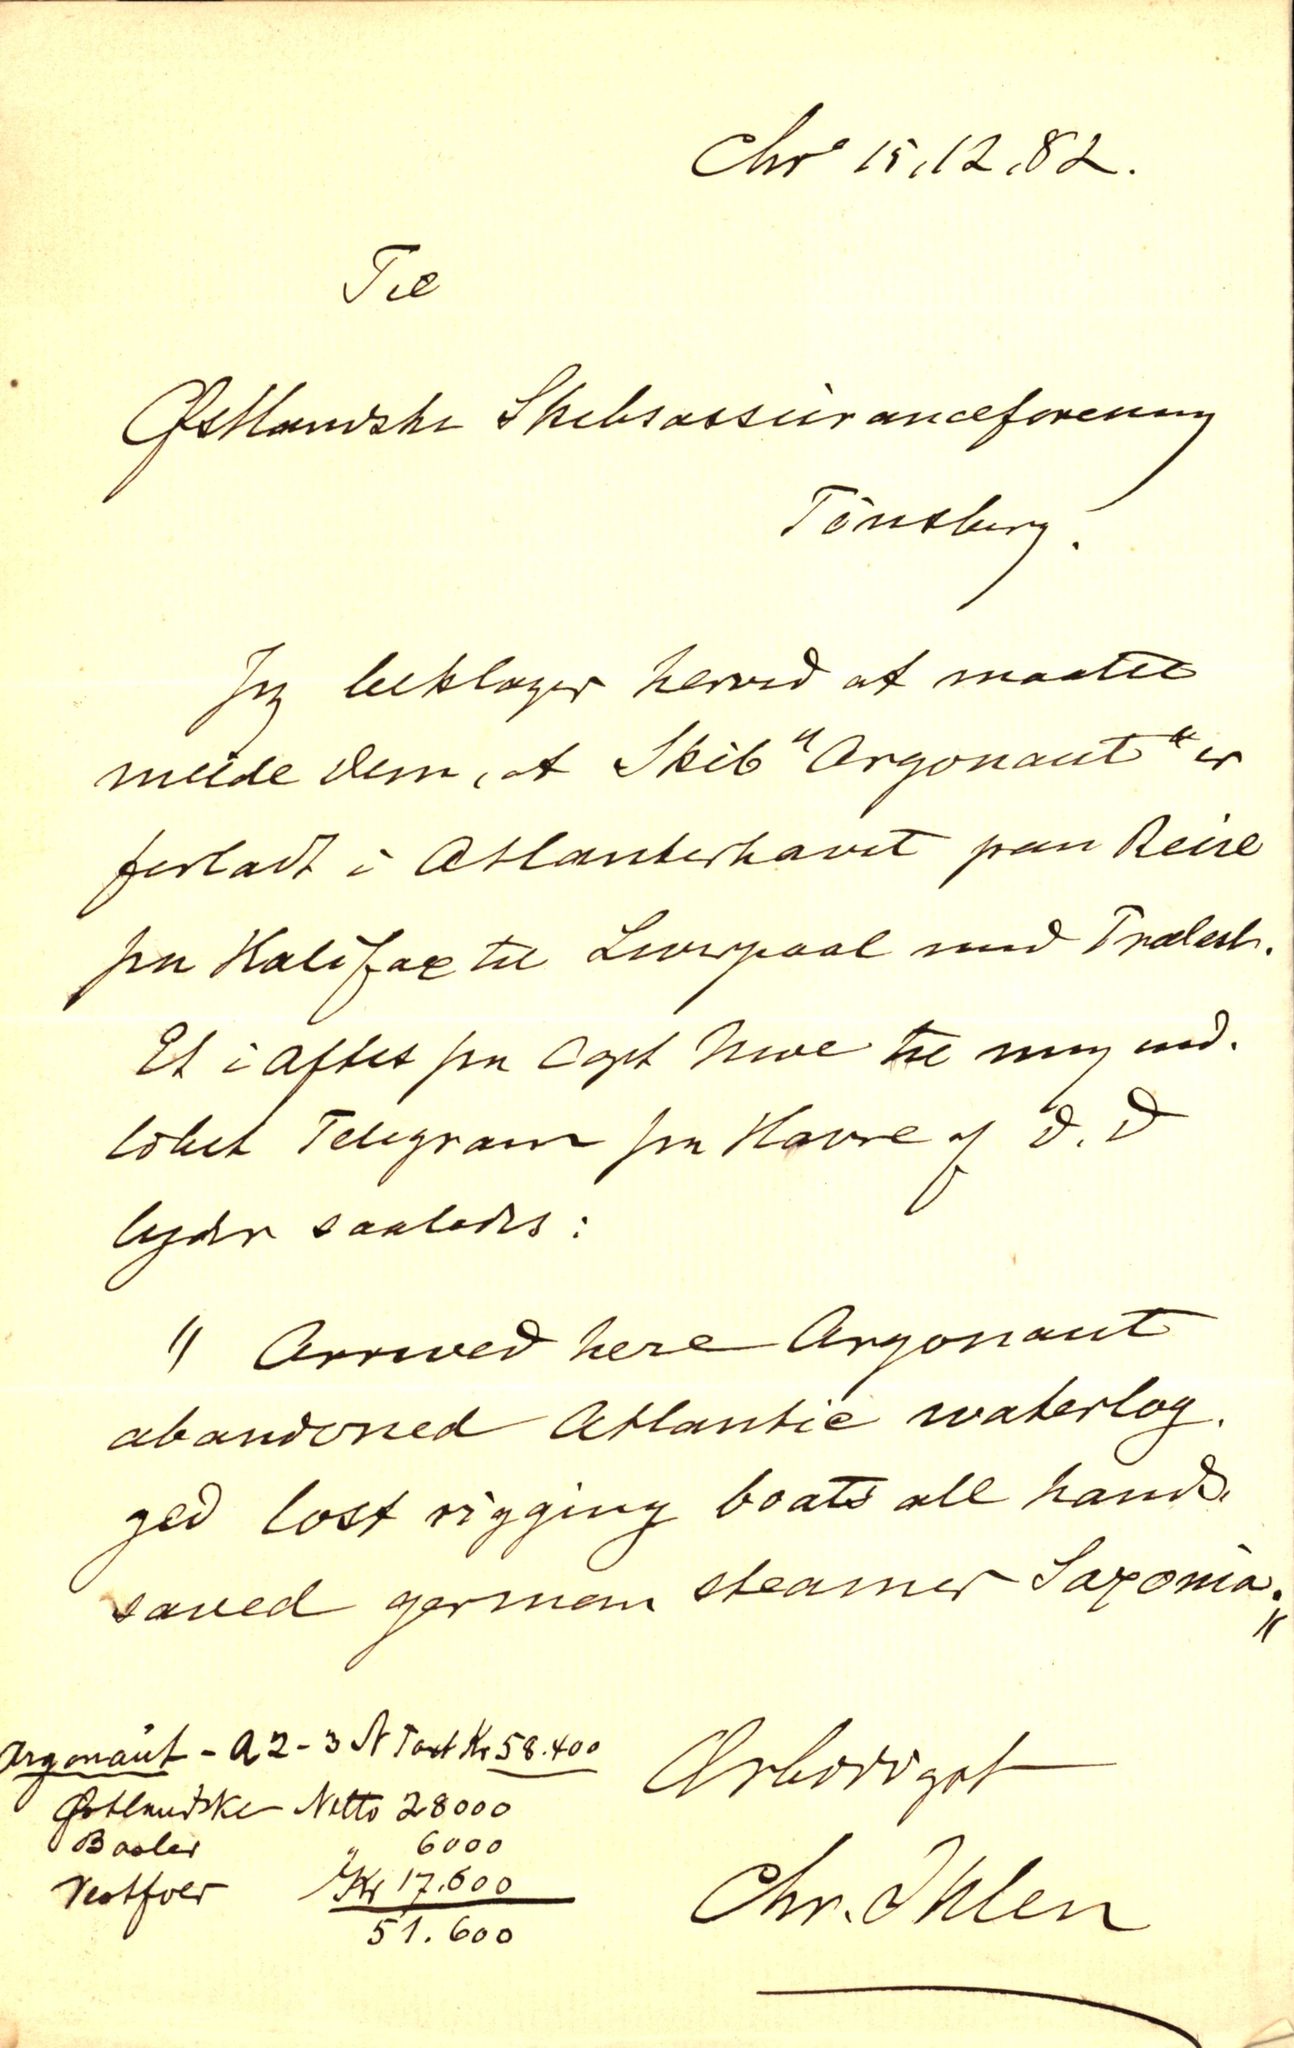 Chra 15.12.82.
Til
Østlandske Skibsassuranceforening
Tönsberg.
Jeg beklager herved at maatte
melde Dem, at Skib "Argonaut" er
forladt i Atlanterhavet paa Reise
fra Halifax til Liverpool med Trælast.
Et i Aftes fra Capt til mig ind-
löbet Telegram fra Havre af D. D
lyder saaledes:
"Arrived here Argonaut
abandoned Atlantic waterlog-
ged lost rigging boats all hands
saved german steamer Saxonia."
Ærbödigst
Chr. Ihlen
Argonaut - A2-3 Taxt Kr 58.400
Østlandske Netto 28000
Basler " 6000
Vestfold Kr 17.600
51.600